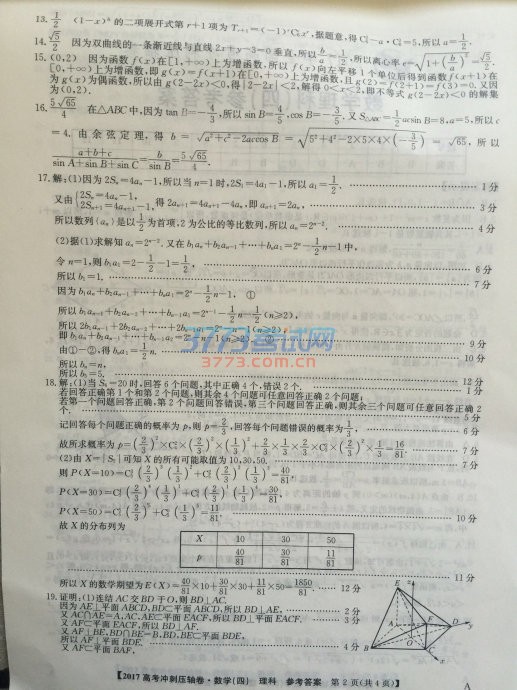 13. 1/2 (1-x)⁶的二项展开式第r+1项为T_{r+1}=(-1)^r C₆^r x^r,据题意,得
14. √5/2 因为双曲线的一条渐近线与直线2x+y-3=0垂直,所以b/a=1/2,所以离心率e=√(1+(b/a)²)=√5/2.
15. (0,2) 因为函数f(x)在[1,+∞)上为增函数,所以f(x)向左平移1个单位后得到函数f(x+1)在
[0,+∞)上为增函数,即g(x)=f(x+1)在[0,+∞)上为增函数,且g(2)=f(2+1)=f(3)=0.又因
为g(x)为偶函数,所以由g(2-2x)<0,得|2-2x|<2,解得0<x<2,即不等式g(2-2x)<0的解集
为(0,2).
16. 5√65/4 在△ABC中,因为tan B=-4/3,所以sin B=4/5,cos B=-3/5.又S△ABC=1/2 acsin B=8,a=5,所以c
=4.由余弦定理,得b=√(a²+c²-2accos B)=√(5²+4²-2×5×4×(-3/5))=√65,所以
(a+b+c)/(sin A+sin B+sin C)=b/sin B=5√65/4.
17.解:(1)因为2Sₙ=4aₙ-1,所以当n=1时,2S₁=4a₁-1,所以a₁=1/2. 1分
又由{2Sₙ=4aₙ-1, 2Sₙ₊₁=4aₙ₊₁-1,得2aₙ₊₁=4aₙ₊₁-4aₙ,即aₙ₊₁=2aₙ. 3分
所以数列{aₙ}是以1/2为首项,2为公比的等比数列,所以aₙ=2ⁿ⁻². 4分
(2)据(1)求解知aₙ=2ⁿ⁻²,又在b₁aₙ+b₂aₙ₋₁+⋯+bₙa₁=2ⁿ-1/2n-1中,
令n=1,则b₁a₁=2-1/2-1=1/2, 6分
所以b₁=1. 7分
因为b₁aₙ+b₂aₙ₋₁+⋯+bₙa₁=2ⁿ-1/2n-1, ①
所以b₁aₙ₋₁+b₂aₙ₋₂+⋯+bₙ₋₁a₁=2ⁿ⁻¹-1/2n-1/2(n≥2),
所以2b₁aₙ₋₁+2b₂aₙ₋₂+⋯+2bₙ₋₁a₁=2ⁿ-n-1(n≥2),
9分
由①-②,得bₙa₁=1/2n. 10分
所以bₙ=n.
所以 12分
18.解:(1)当S₆=20时,回答6个问题,其中正确4个,错误2个. 1分
若回答正确第1个和第2个问题,则其余4个问题可任意回答正确2个问题;
若第一个问题回答正确,第2个问题回答错误,第三个问题回答正确,则其余三个问题可任意回答正确2
个. 5分
记回答每个问题正确的概率为p,则p=2/3,回答每个问题错误的概率为1/3. 6分
故所求概率为p=(2/3)²×C₄²×(2/3)²×(1/3)²+2/3×1/3×2/3×C₃²(2/3)²×1/3=16/81. 7分
(2)由X=|S₅|可知X的所有可能取值为10,30,50. 7分
则P(X=10)=C₅³(2/3)³(1/3)²+C₅²(2/3)²(1/3)³=40/81,
P(X=30)=C₅⁴(2/3)⁴(1/3)¹+C₅¹(2/3)¹(1/3)⁴=30/81,
P(X=50)=C₅⁵(2/3)⁵+C₅⁰(1/3)⁵=11/81. 10分
故X的分布列为
X 10 30 50
p 40/81 30/81 11/81
11分
所以X的数学期望为E(X)=40/81×10+30/81×30+11/81×50=1850/81. 12分
19.证明:(1)连结AC交BD于O,则BD⊥AC.
因为AE⊥平面ABCD,BD⊂平面ABCD,所以BD⊥AE. 2分
又AC∩AE=A,AC,AE⊂平面EACF,所以BD⊥平面EACF. 3分
又AF⊂平面EACF,所以BD⊥AF.
又AF⊥BE,BD∩BE=B,BD,BE⊂平面BDE,
所以AF⊥平面BDE.
【2017高考冲刺压轴卷·数学(四) 理科 参考答案 第2页(共4页)】
A
3773考试网
3773.com.cn